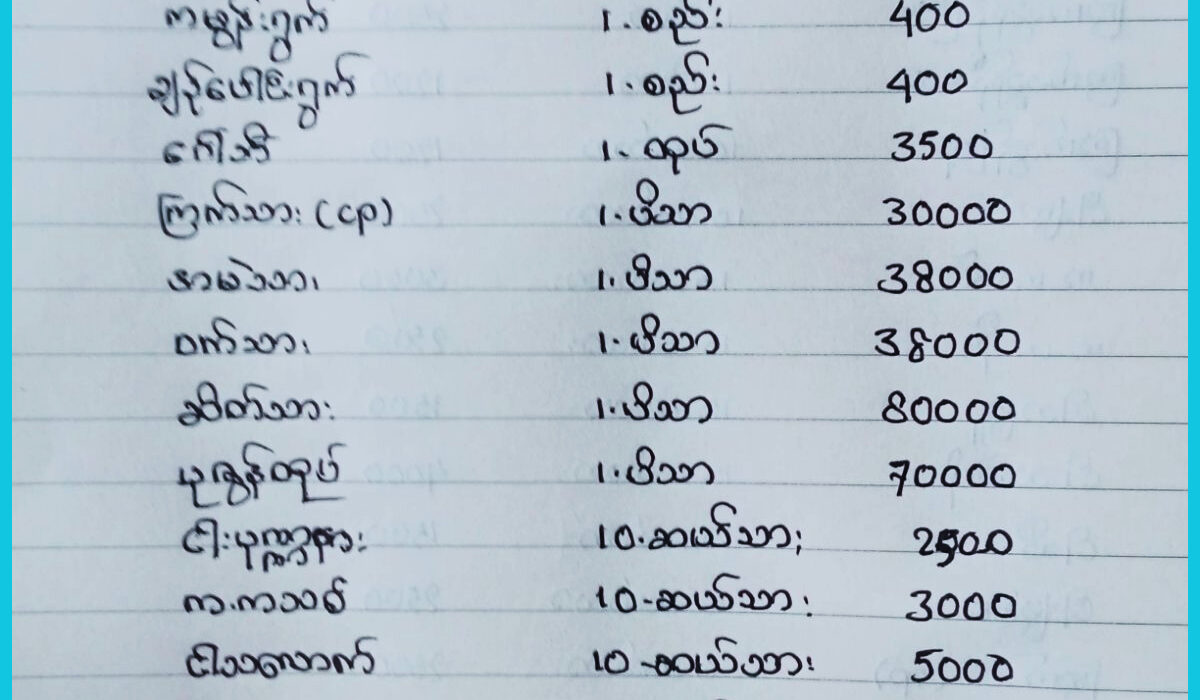 ကစွန်းရွက် 1. စည်း 400
ချဉ်ပေါင်ရွက် 1. စည်း 400
ဂေါ်ဘီ 1. ထုပ် 3500
ကြက်သား (CP) 1. ပိဿာ 30000
ဘဲသား 1. ပိဿာ 38000
ဝက်သား 1. ပိဿာ 38000
ဆိတ်သား 1. ပိဿာ 80000
ပုဇွန်ထုပ် 1. ပိဿာ 70000
ငါး 10. ဆယ်သား 2500
က.ကသစ် 10 - ဆယ်သား 3000
ငါးသလောက် 10 - ဆယ်သား 5000